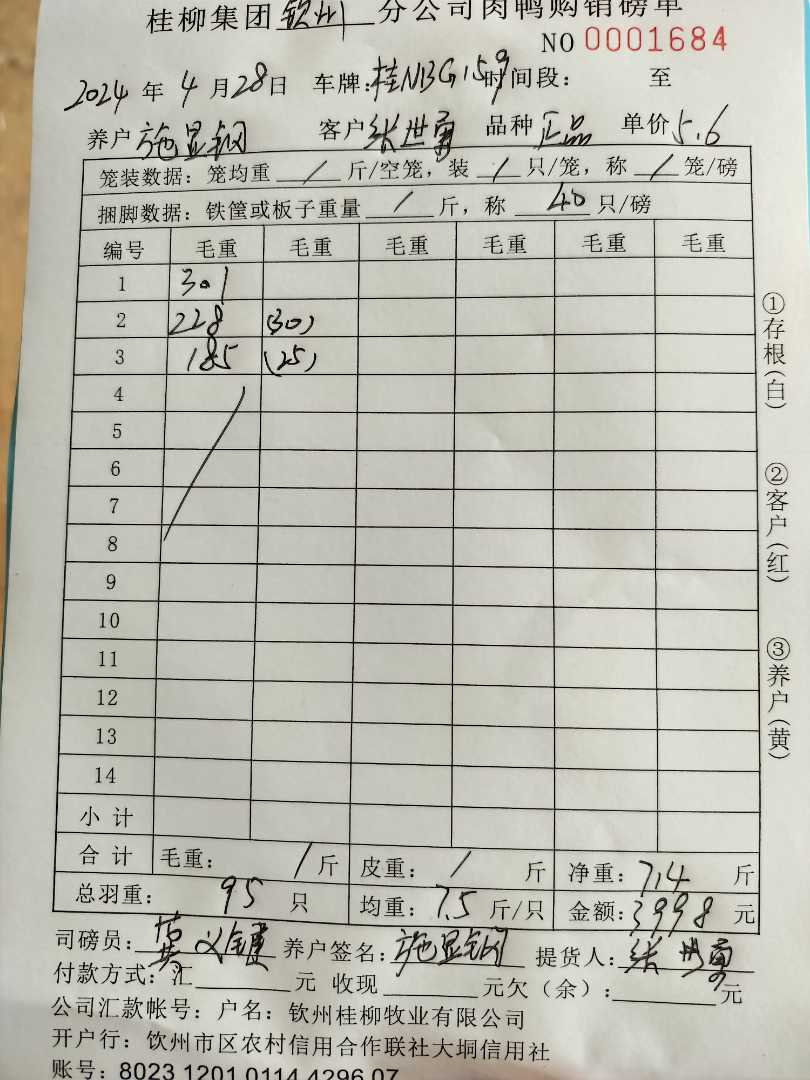 桂柳集团钦州分公司肉鸭购销磅单
NO 0001684
2024 年 4 月 28 日 车牌:桂NBG159 时间段: 至
养户 施显钢 客户 张世勇 品种 正品 单价 5.6
笼装数据: 笼均重 / 斤/空笼, 装 / 只/笼, 称 / 笼/磅
捆脚数据: 铁筐或板子重量 / 斤, 称 40 只/磅
编号 毛重 毛重 毛重 毛重 毛重 毛重
1 301
2 228 (30)
3 185 (25)
4
5
6
7
8
9
10
11
12
13
14
小计
合计 毛重: / 斤 皮重: / 斤 净重: 714 斤
总羽重: 95 只 均重: 7.5 斤/只 金额: 3998 元
司磅员: 莫义键 养户签名: 施显钢 提货人: 张世勇
付款方式: 汇 元 收现 元欠(余): 元
公司汇款帐号: 户名: 钦州桂柳牧业有限公司
开户行: 钦州市区农村信用合作联社大垌信用社
账号: 8023 1201 0114 4296 07
①存根(白)
②客户(红)
③养户(黄)